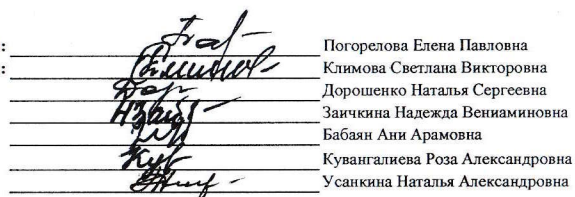 : Погорелова Елена Павловна
: Климова Светлана Викторовна
Дорошенко Наталья Сергеевна
Заичкина Надежда Вениаминовна
Бабаян Ани Арамовна
Кувангалиева Роза Александровна
Усанкина Наталья Александровна